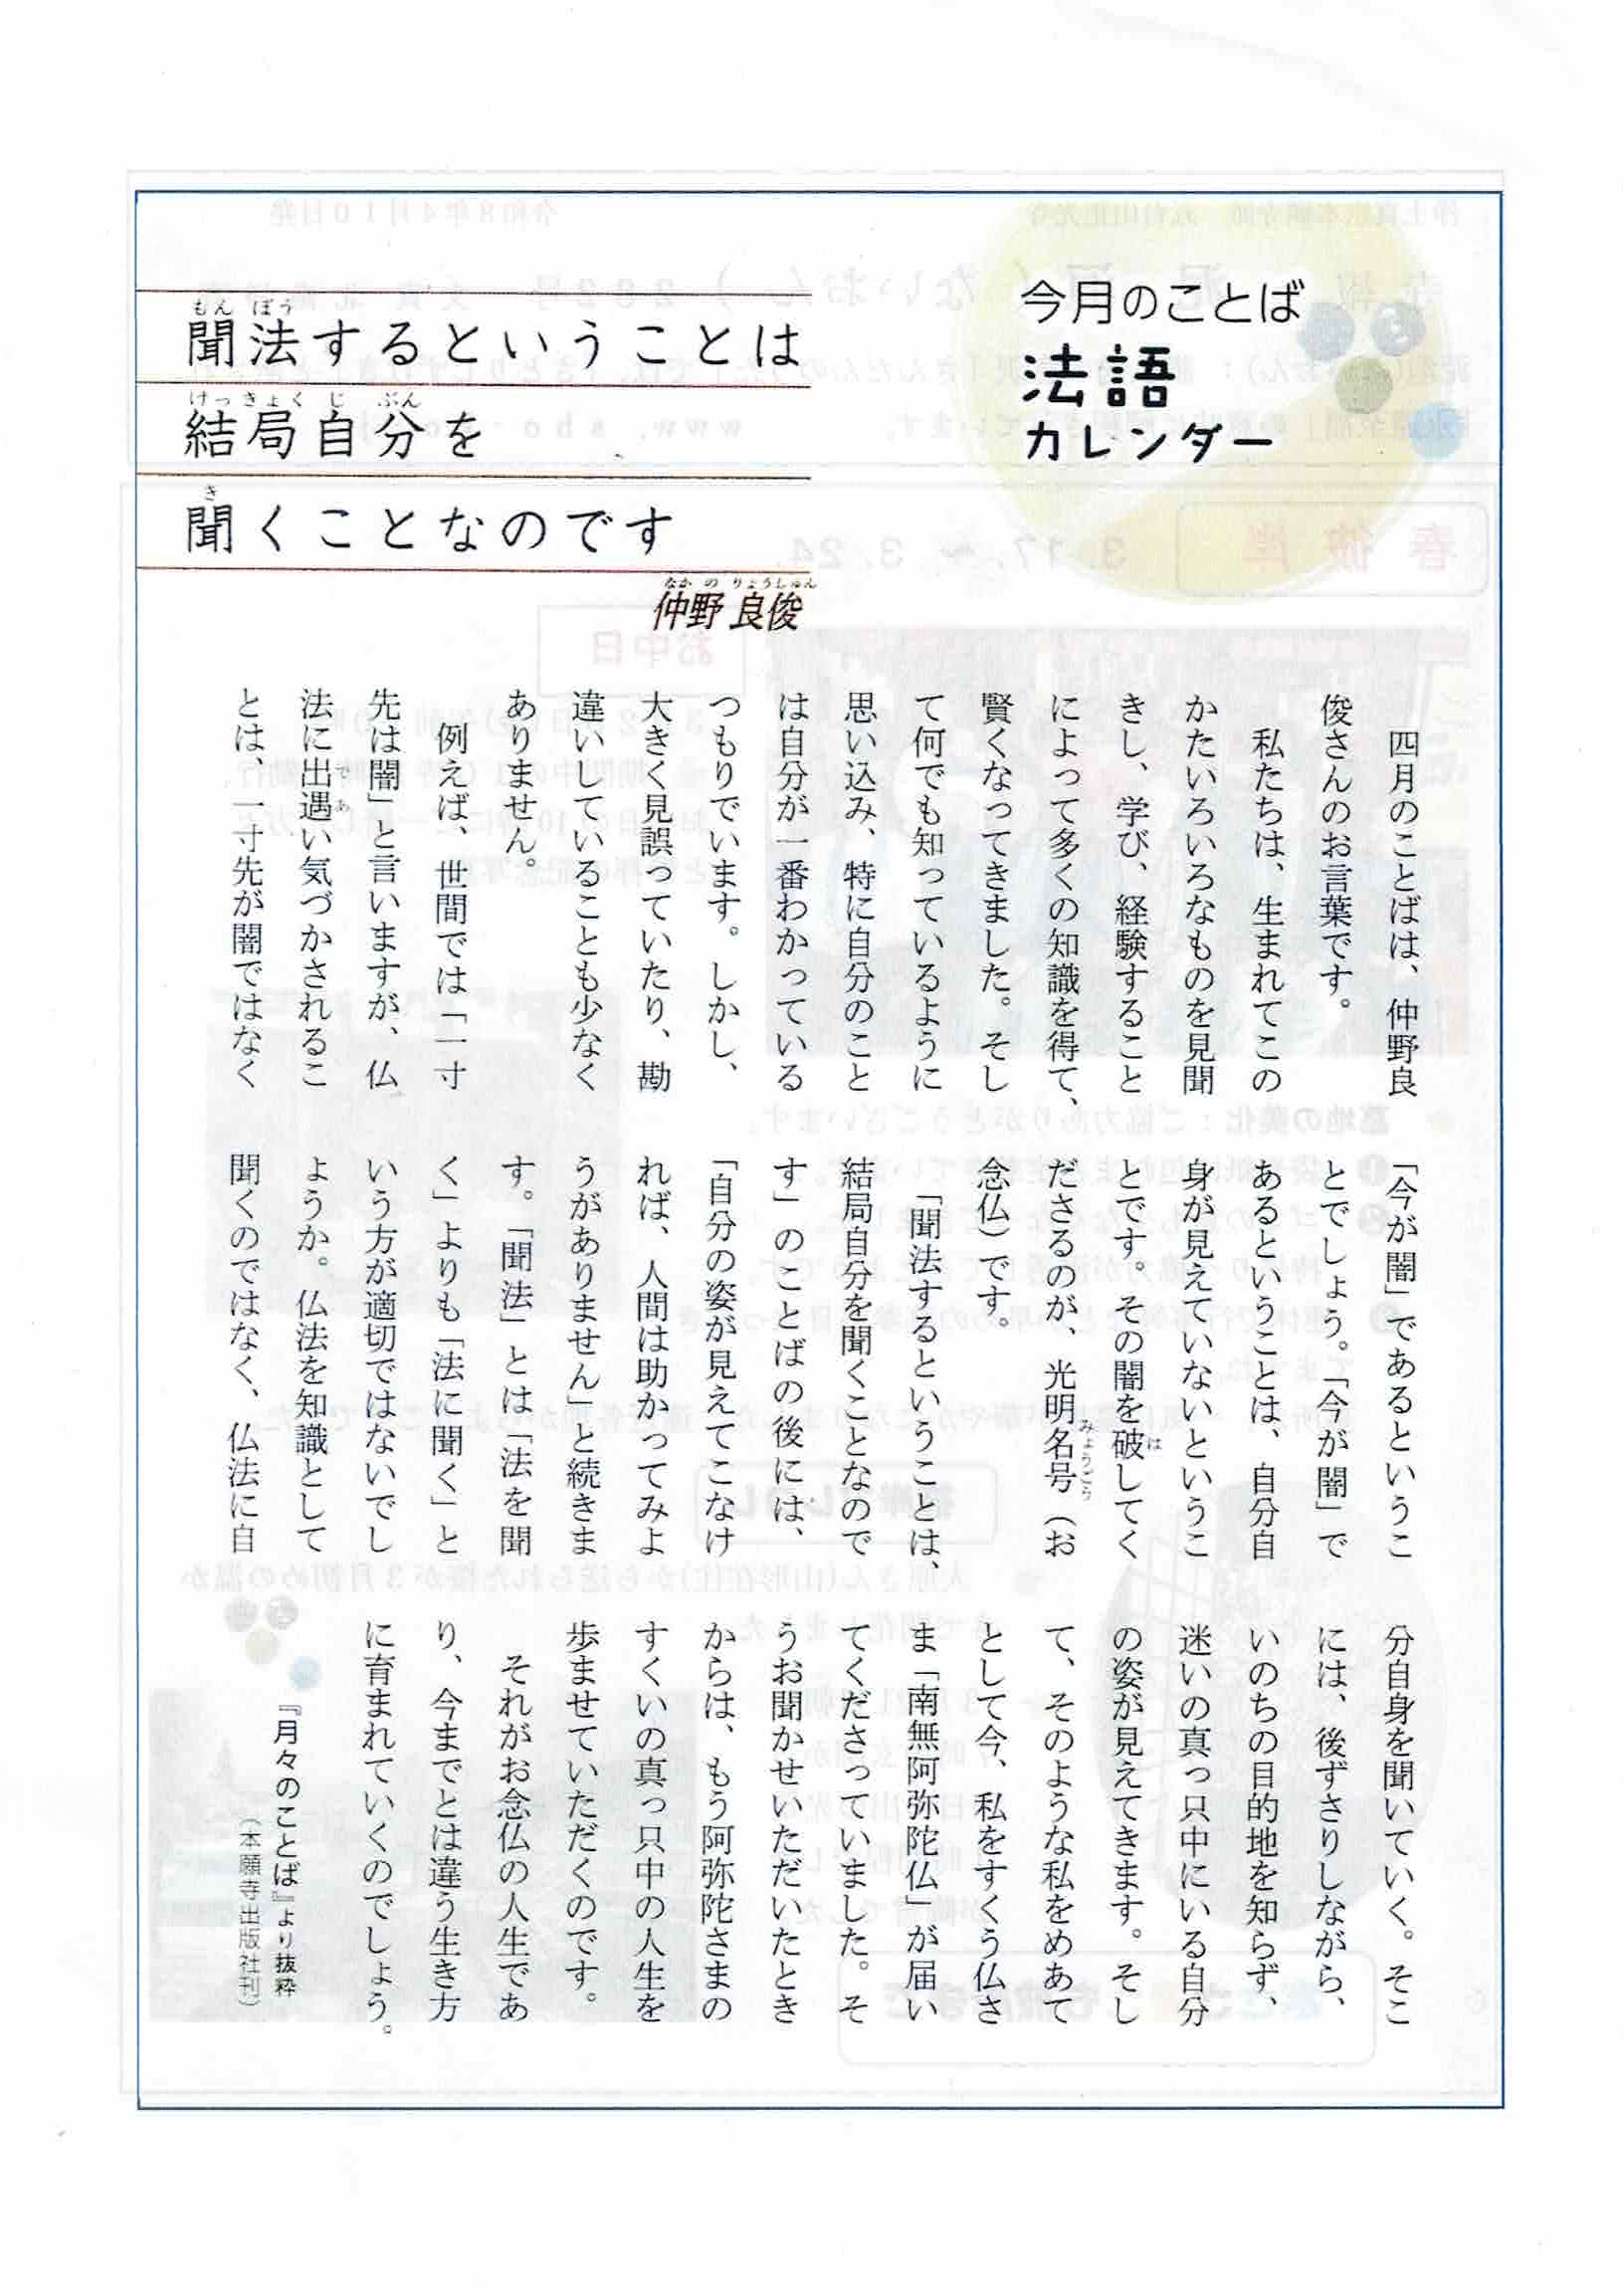 今月のことば
法語
カレンダー
聞法するということは
結局自分を
聞くことなのです
仲野 良俊
四月のことばは、仲野良
俊さんのお言葉です。
私たちは、生まれてこの
かたいろいろなものを見聞
きし、学び、経験すること
によって多くの知識を得て、
賢くなってきました。そし
て何でも知っているように
思い込み、特に自分のこと
は自分が一番わかっている
つもりでいます。しかし、
大きく見誤っていたり、勘
違いしていることも少なく
ありません。
例えば、世間では「一寸
先は闇」と言いますが、仏
法に出遇い気づかされるこ
とは、一寸先が闇ではなく
「今が闇」であるというこ
とでしょう。「今が闇」で
あるということは、自分自
身が見えていないというこ
とです。その闇を破してく
ださるのが、光明名号（お
念仏）です。
「聞法するということは、
結局自分を聞くことなので
す」のことばの後には、
「自分の姿が見えてこなけ
れば、人間は助かってみよ
うがありません」と続きま
す。「聞法」とは「法を聞
く」よりも「法に聞く」と
いう方が適切ではないでし
ょうか。仏法を知識として
聞くのではなく、仏法に自
分自身を聞いていく。そこ
には、後ずさりしながら、
いのちの目的地を知らず、
迷いの真っ只中にいる自分
の姿が見えてきます。そし
て、そのような私をめあて
として今、私をすくう仏さ
ま「南無阿弥陀仏」が届い
てくださっていました。そ
うお聞かせいただいたとき
からは、もう阿弥陀さまの
すくいの真っ只中の人生を
歩ませていただくのです。
それがお念仏の人生であ
り、今までとは違う生き方
に育まれていくのでしょう。
『月々のことば』より抜粋
（本願寺出版社刊）